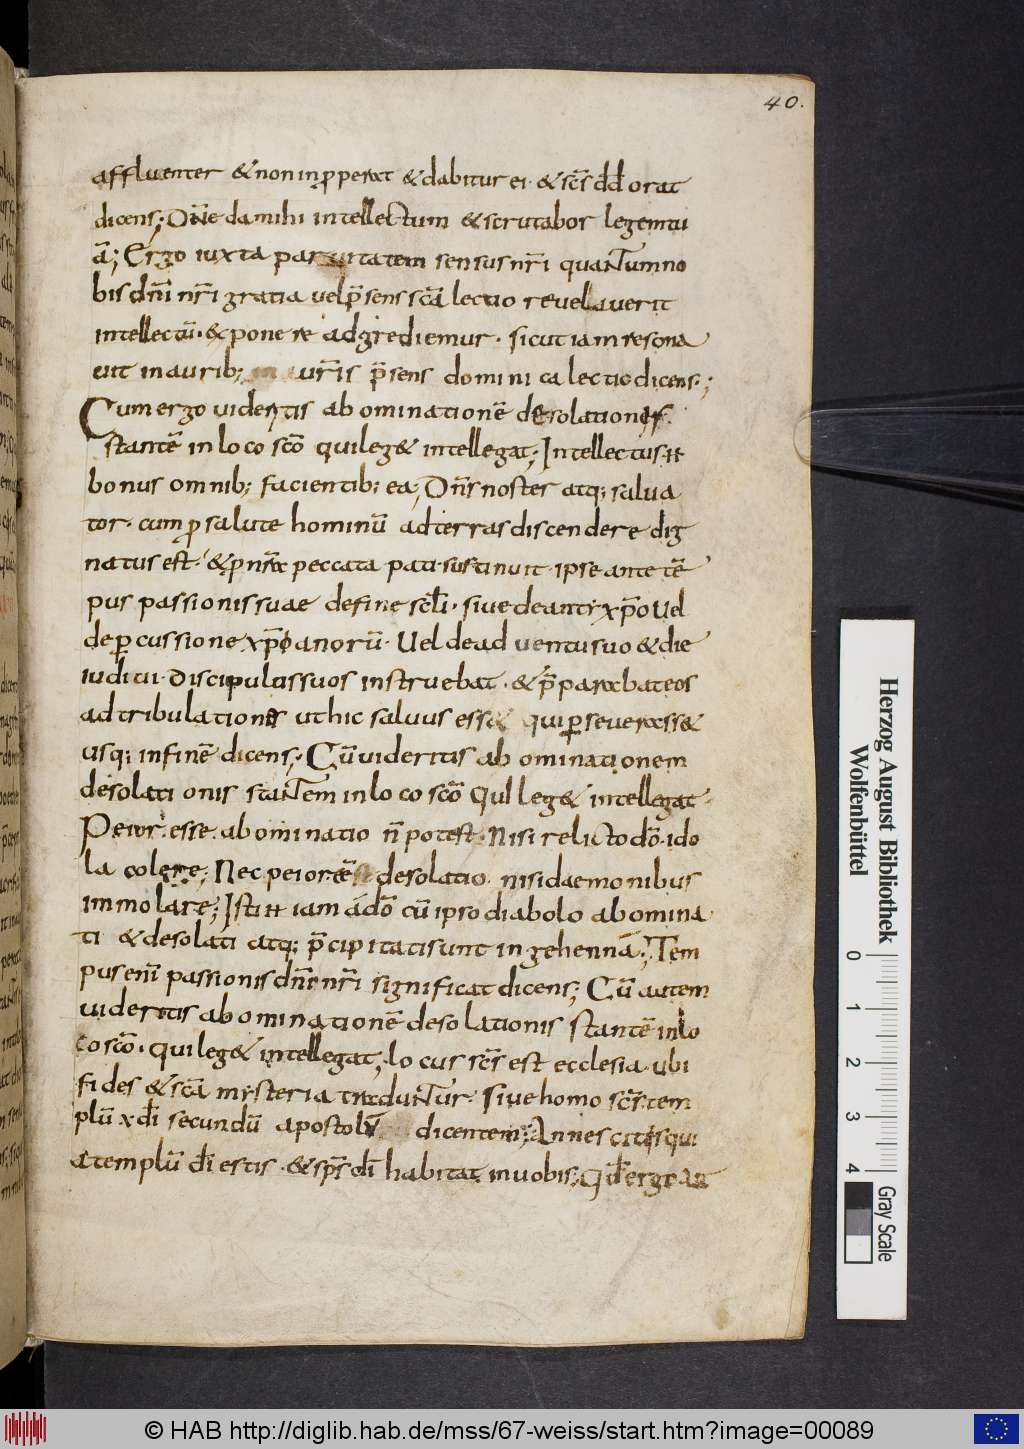 40.
affluenter & non inp̱perat & dabitur ei · & sc̄s dd̄ orat
dicens; Dn̄e da mihi intellectum & scrutabor legem tu
ā; Ergo iuxta paruitatem sensus nr̄i quantum no
bis dn̄i nr̄i gratia uel p̄sens sc̄a lectio reuelauerit
intellectū · & ponere adgrediemur · sicut iam resona
uit in aurib; ur̄is p̄sens dominica lectio dicens ·;
Cum ergo uideritis abominationē desolationis
stantē in loco sc̄o qui leg& intellegat; Intellectus ·
bonus omnib; facientib; ea; Dn̄s noster atq; salua
tor · cum ꝓ salute hominū ad terras discendere dig
natus est · & ꝓ nr̄a peccata pati sustinuit · ipse ante tē
pus passionis suae de fine sc̄li · siue de antixp̄o Uel
de ꝑcussione xp̄ianorū · Uel de aduentu suo & die
iuditii · Discipulus suos instruebat · & p̄parabat eos
ad tribulationes ut hic saluus ess& qui ꝑseuerass&
usq; in finē dicens; Cū uideritis abominationem
desolationis stantem in loco sc̄o Qui leg& intellegat ·
Peior esse abominatio n̄ potest · Nisi relicto dō · ido
la colere; Nec peior ē desolatio · nisi daemonibus
immolare; Isti iam a dō cū ipso diabolo abomina
ti & desolati atq; p̄cipitati sunt in gehennā; Tem
pus enī passionis dn̄i nr̄i significat dicens; Cū autem
uideritis abominationē desolationis stantē in lo
co sc̄o · qui leg& intellegat; locus sc̄s est ecclesia ubi
fides & sc̄a mysteria traduntur · Siue homo sc̄s tem
plū xd̄i secundū apostolū dicentem; An nescitis qui
a templū dī estis · & sp̄s dī habitat in uobis; Qd̄ ergo an
Herzog August Bibliothek
Wolfenbüttel
0 1 2 3 4
Gray Scale
© HAB http://diglib.hab.de/mss/67-weiss/start.htm?image=00089